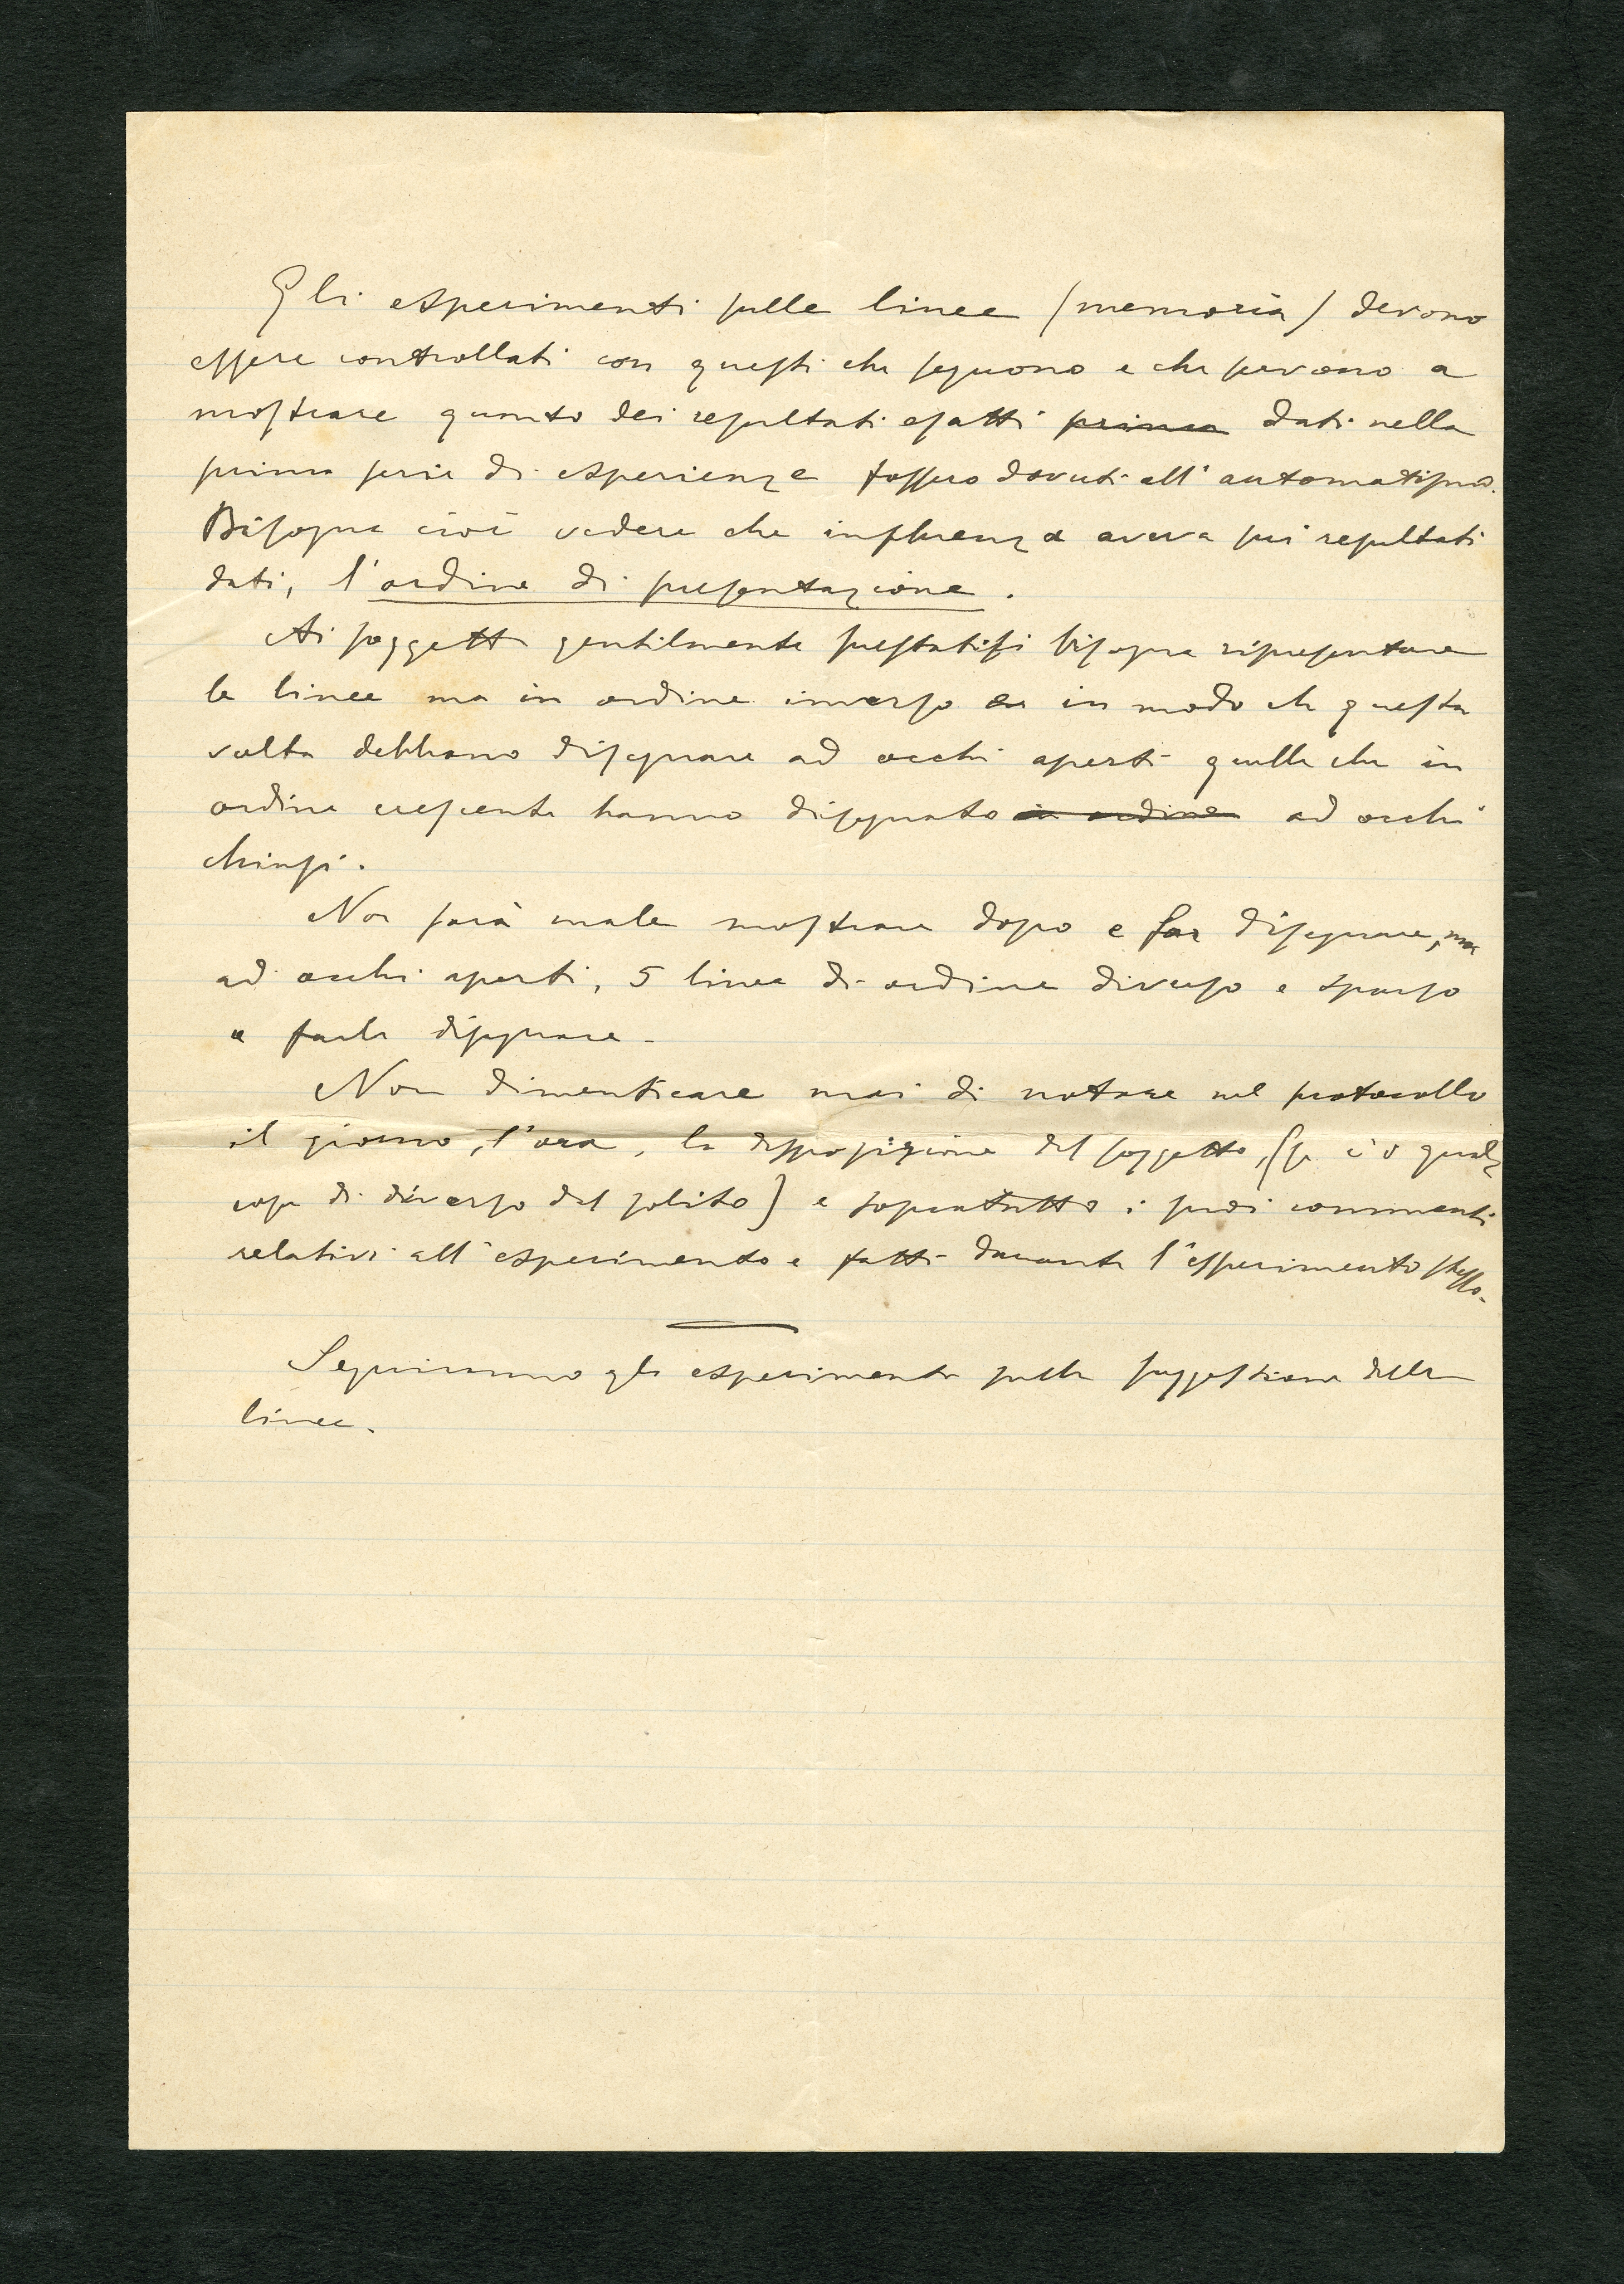 Gli esperimenti sulle linee (memoria) devono
essere controllati con questi che seguono e che servono a
mostrare quanto dei resultati esatti prima dati nella
prima serie di esperienze fossero dovuti all'automatismo.
Bisogna cioè vedere che influenza aveva sui resultati
dati, l'ordine di presentazione.
Ai soggetti gentilmente prestatisi bisogna ripresentare
le linee ma in ordine inverso in modo che questa
volta debbano disegnare ad occhi aperti quelle che in
ordine crescente hanno disegnato in ordine ad occhi
chiusi.
Non sarà male mostrare dopo e far disegnare, ma
ad occhi aperti, 5 linee di ordine diverso e sparso
e farle disegnare.
Non dimenticare mai di notare nel protocollo
il giorno, l'ora, la disposizione del soggetto, (se c'è qual
cosa di diverso dal solito) e sopratutto i suoi commenti
relativi all'esperimento e fatti durante l'esperimento stesso.
Seguiranno gli esperimenti sulla suggestione delle
linee.